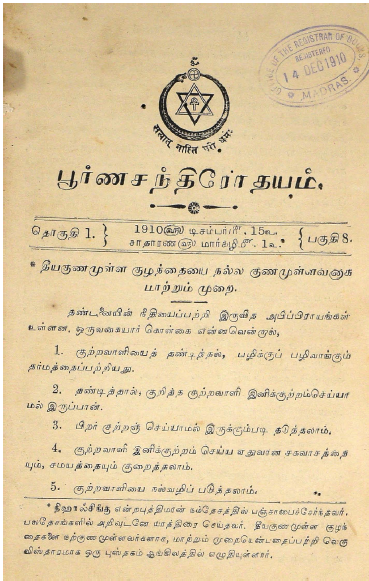 OFFICE OF THE REGISTRAR OF BOOKS,
REGISTERED
14 DEC 1910
MADRAS.
ॐ
सत्यात् नास्ति परो धर्मः
பூர்ணசந்திரோதயம்.
தொகுதி 1.
1910 ௵ டிசம்பர் ௴ 15 ௳
சாதாரண ௵ மார்கழி ௴ 1 ௳
பகுதி 8.
* தீயகுணமுள்ள குழந்தையை நல்ல குணமுள்ளவனாக
மாற்றும் முறை.
தண்டனையின் நீதியைப்பற்றி இருவித அபிப்பிராயங்கள்
உள்ளன. ஒருவகையார் கொள்கை என்னவென்றால்,
1. குற்றவாளியைத் தண்டித்தல், பழிக்குப் பழிவாங்கும்
தர்மத்தைப்பற்றியது.
2. தண்டித்தால், குறித்த குற்றவாளி இனிக்குற்றம்செய்யா
மல் இருப்பான்.
3. பிறர் குற்றஞ் செய்யாமல் இருக்கும்படி தடுத்தலாம்.
4. குற்றவாளி இனிக்குற்றம் செய்ய ஏதுவான சகவாசத்தை
யும், சமயத்தையும் குறைத்தலாம்.
5. குற்றவாளியை நல்வழிப் படுத்தலாம்.
* நிஹால்சிங்கு என்றபுத்திமான் நம்தேசத்தில் பஞ்சாபைச்சேர்ந்தவர்.
பலதேசங்களில் அறிவுடனே யாத்திரை செய்தவர். தீயகுணமுள்ள குழந்
தைகளை நற்குணமுள்ளவர்களாக, மாற்றும் முறையென்பதைப்பற்றி வெகு
விஸ்தாரமாக ஒரு புஸ்தகம் ஆங்கிலத்தில் எழுதியுள்ளார்.